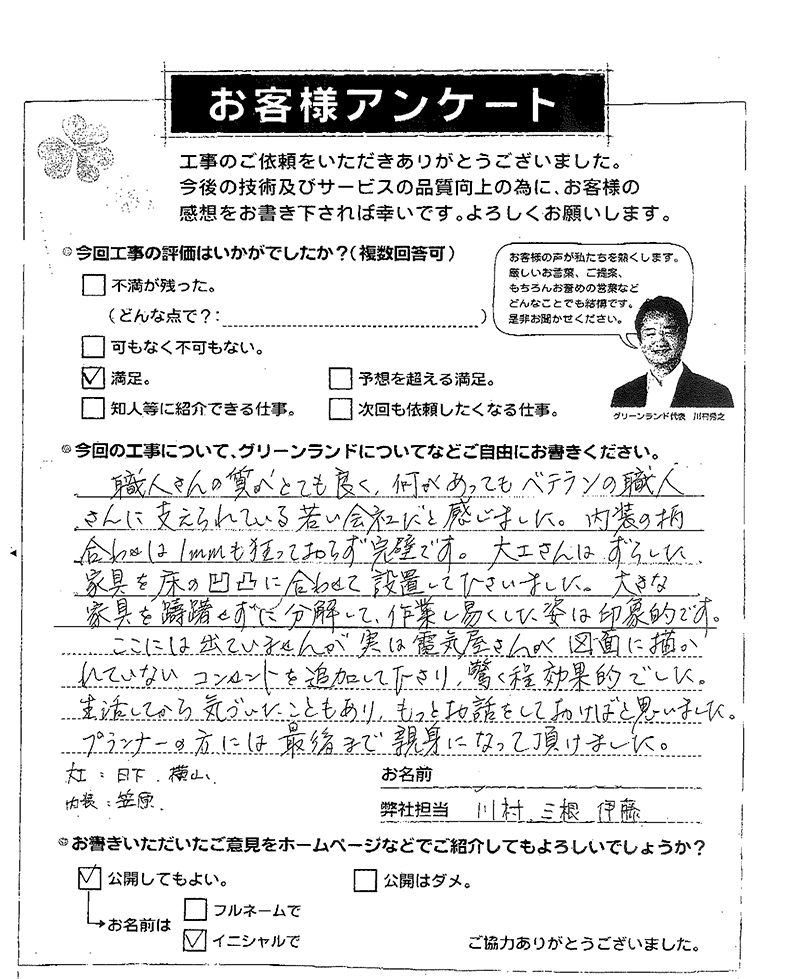 お客様アンケート
工事のご依頼をいただきありがとうございました。
今後の技術及びサービスの品質向上の為に、お客様の
感想をお書き下されば幸いです。よろしくお願いします。
今回工事の評価はいかがでしたか？(複数回答可)
不満が残った。
(どんな点で？: )
可もなく不可もない。
満足。 予想を超える満足。
知人等に紹介できる仕事。 次回も依頼したくなる仕事。
お客様の声が私たちを熱くします。
厳しいお言葉、ご提案、
もちろんお誉めの言葉など
どんなことでも結構です。
是非お聞かせください。
グリーンランド代表 川村秀之
今回の工事について、グリーンランドについてなどご自由にお書きください。
職人さんの質がとても良く、何があってもベテランの職人
さんに支えられている若い会社だと感じました。内装の柄
合わせは1mmも狂っておらず完璧です。大工さんはずらした
家具を床の凹凸に合わせて設置して下さいました。大きな
家具を躊躇せずに分解して、作業し易くした姿は印象的です。
ここには出ていませんが実は電気屋さんが図面に描か
れていないコンセントを追加して下さり、驚く程効果的でした。
生活してから気づいたこともあり、もっとお話をしておけばと思いました。
プランナーの方には最後まで親身になって頂けました。
大工：日下、横山、
内装：笠原、
お名前
弊社担当 川村 三根 伊藤
お書きいただいたご意見をホームページなどでご紹介してもよろしいでしょうか？
公開してもよい。 公開はダメ。
お名前は
フルネームで
イニシャルで
ご協力ありがとうございました。